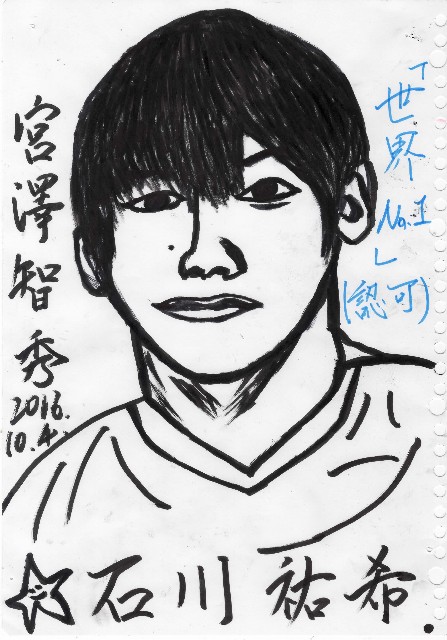 「世界No.1」
(認可)
宮澤智秀
2016.
10.4.
石川祐希